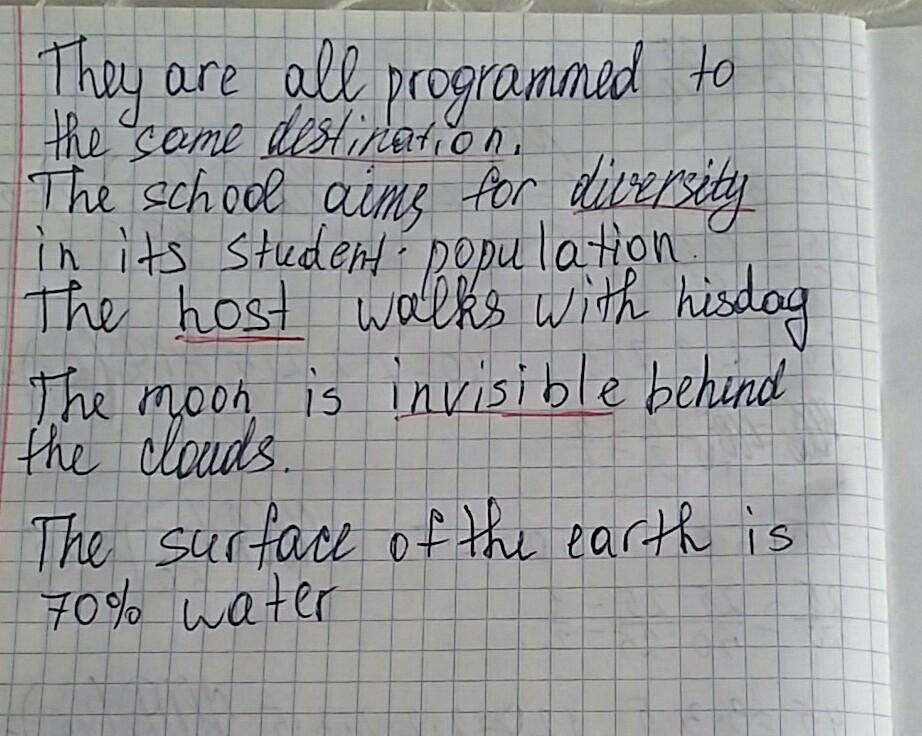 They are all programmed to
the same destination.
The school aims for diversity
in its student population.
The host walks with hisdog
The moon is invisible behind
the clouds.
The surface of the earth is
70% water